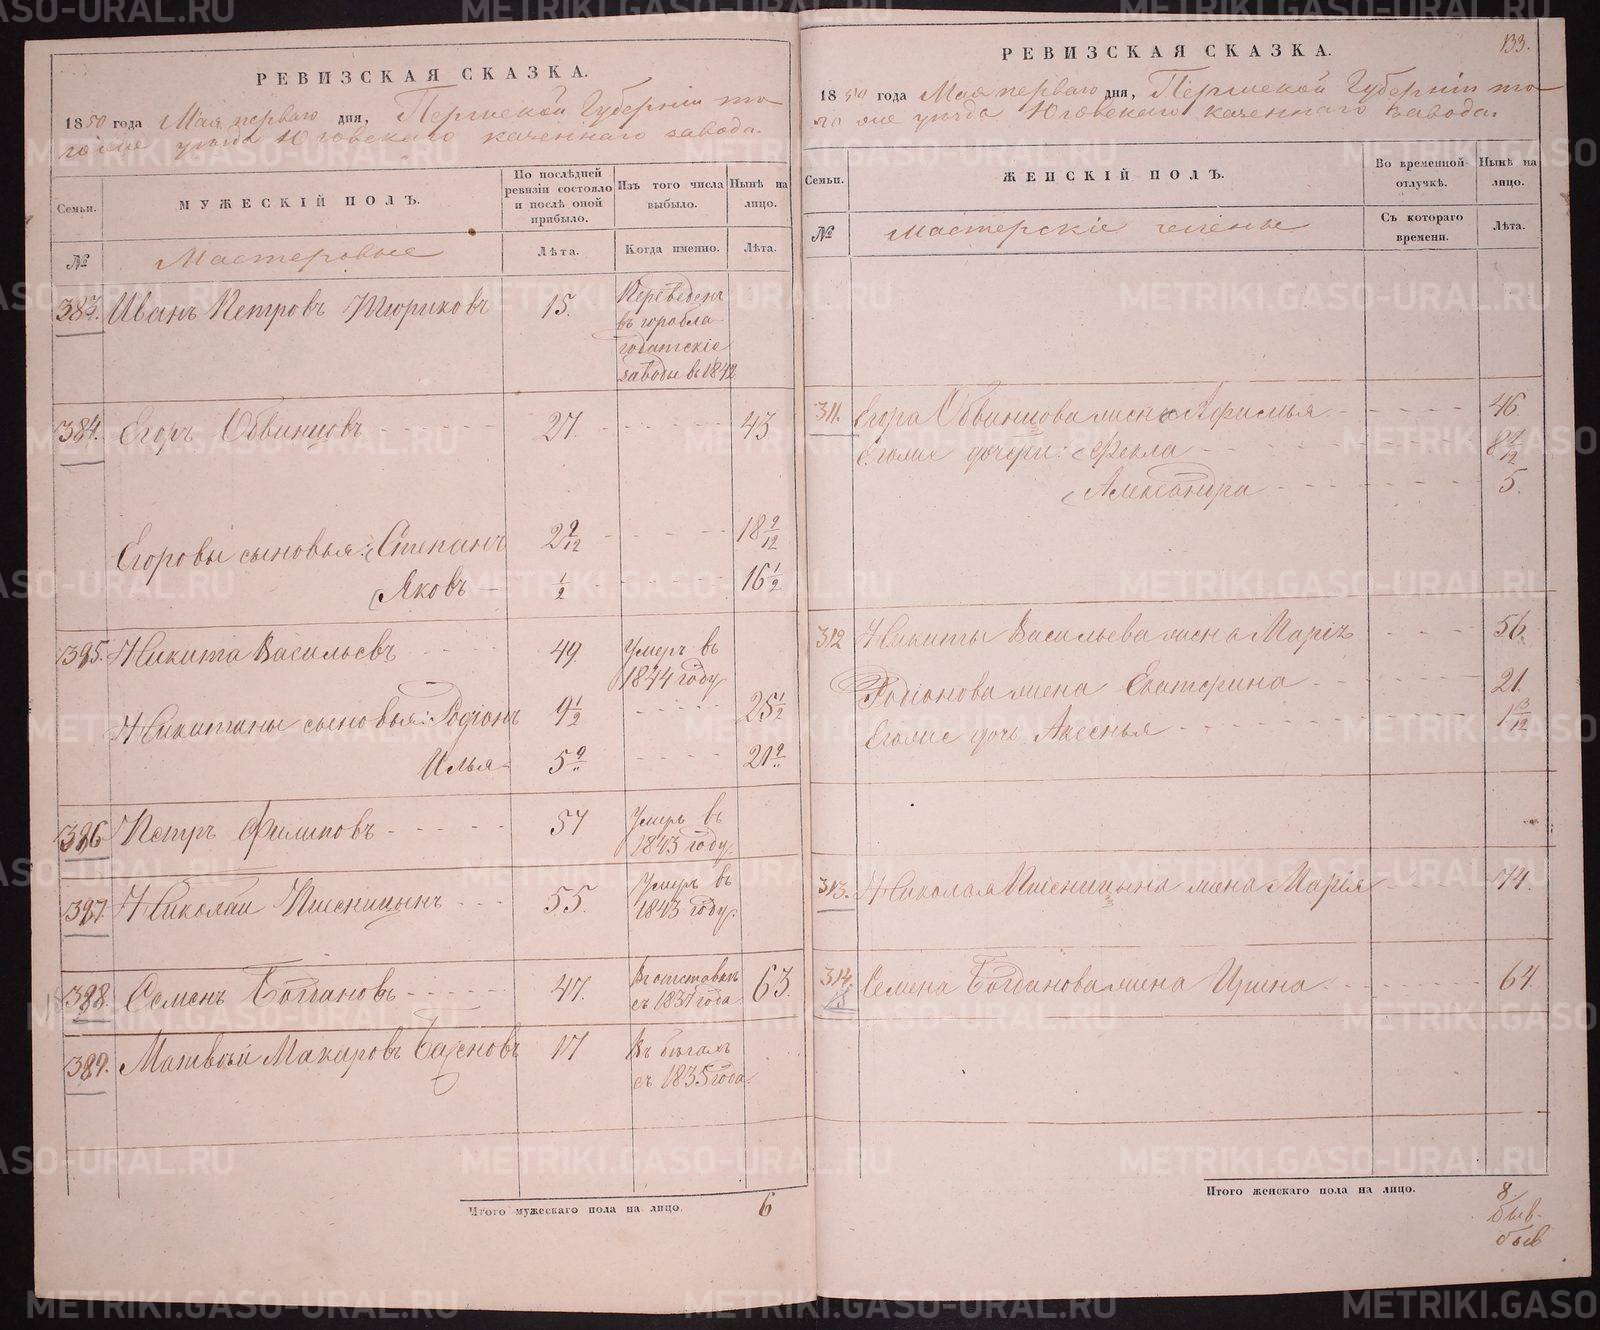 РЕВИЗСКАЯ СКАЗКА.
1850 года Мая перваго дня, Пермской Губерніи то-
гоже уѣзда Юговскаго казеннаго завода.
Семьи.
МУЖЕСКІЙ ПОЛЪ.
По послѣдней ревизіи состояло и послѣ оной прибыло.
Изъ того числа выбыло.
Нынѣ на лицо.
№
Мастеровые
Лѣта.
Когда именно.
Лѣта.
383. Иванъ Петровъ 15. Переведенъ
въ горобла
годатскіе
заводы въ 1842
384. Егоръ Обвинцовъ 27. 43
Егоровы сыновья: Степанъ 2 9/12 18 9/12
Яковъ 1/2 16 1/2
385. Никита Васильевъ 49. Умеръ въ
1844 году
Никитины сыновья: Родіонъ 9 1/2 25 1/2
Илья 5 21
386 Петръ Филиповъ 57 Умеръ въ
1843 году
387. Николай Пшеницынъ 55. Умеръ въ
1843 году.
388. Семенъ Богдановъ 47. Въ отставкѣ
съ 1837 года 63.
389. Матвѣй Макаровъ 17 Въ бѣгахъ
съ 1835 года.
Итого мужескаго пола на лицо. 6
133.
РЕВИЗСКАЯ СКАЗКА.
1850 года Мая перваго дня, Пермской Губерніи то-
го же уѣзда Юговскаго казеннаго завода.
Семьи.
ЖЕНСКІЙ ПОЛЪ.
Во временной отлучкѣ.
Нынѣ на лицо.
№
Мастерскіе жены
Съ котораго времени.
Лѣта.
311. Егора Обвинцова жена Афимья 46.
Егоже дочери: Фекла 8
Александра 5.
312 Никиты Васильева жена Марія 56.
Родіонова жена Екатерина 21.
Егоже дочь Аксенья 1 3/12
313. Николая Пшеницына жена Марія 74.
314. Семена Богданова жена Ирина 64.
Итого женскаго пола на лицо. 8
METRIKI.GASO-URAL.RU